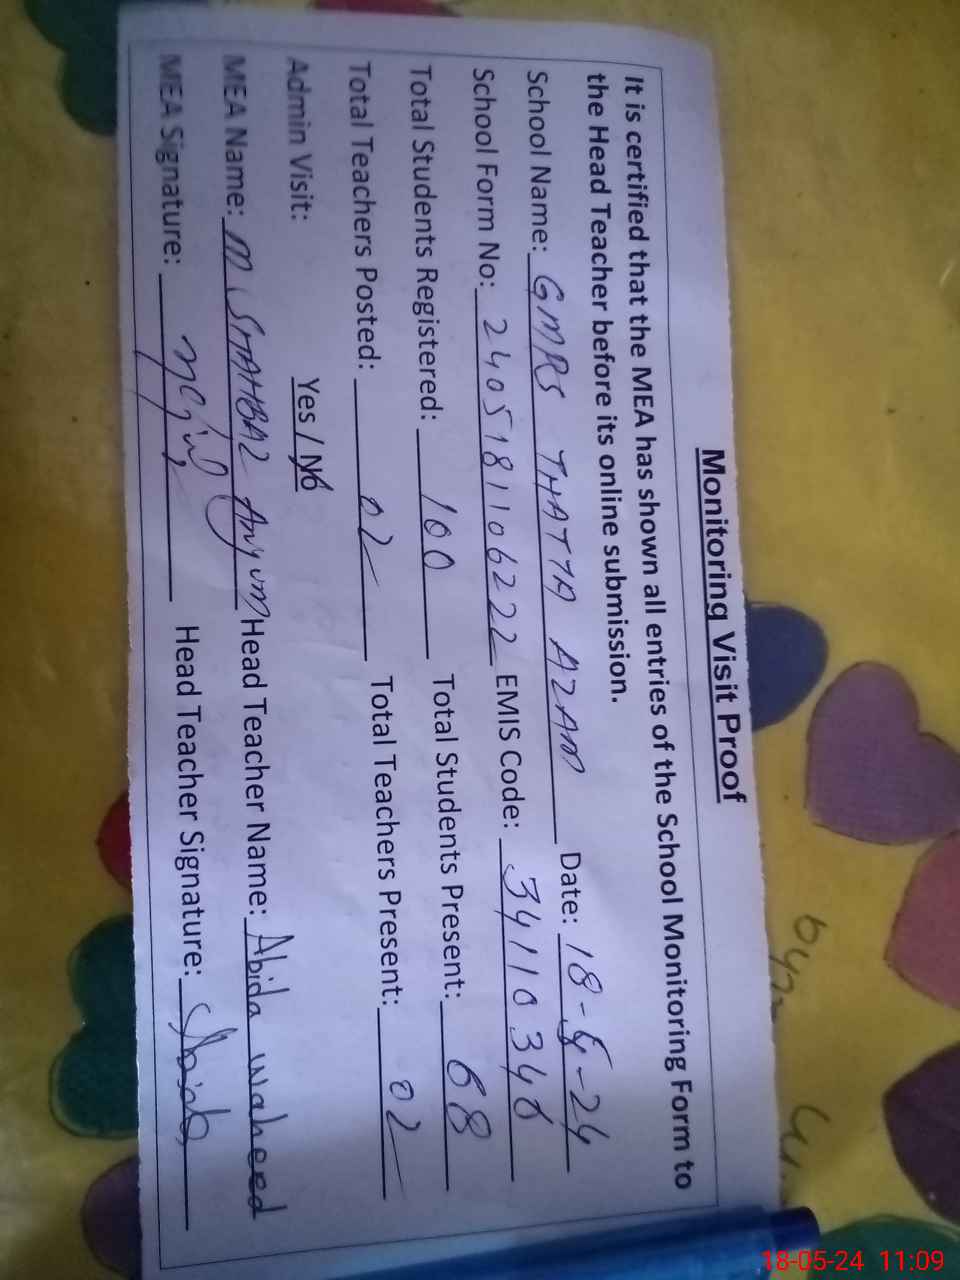 Monitoring Visit Proof
It is certified that the MEA has shown all entries of the School Monitoring Form to
the Head Teacher before its online submission.
School Name: GMPS THATTA AZAM Date: 18-5-24
School Form No: 2405181106222 EMIS Code: 34110346
Total Students Registered: 100 Total Students Present: 68
Total Teachers Posted: 02 Total Teachers Present: 02
Admin Visit: Yes / No
MEA Name: M SHAHBAZ Anjum Head Teacher Name: Abida waheed
MEA Signature: Head Teacher Signature: Abida
18-05-24 11:09